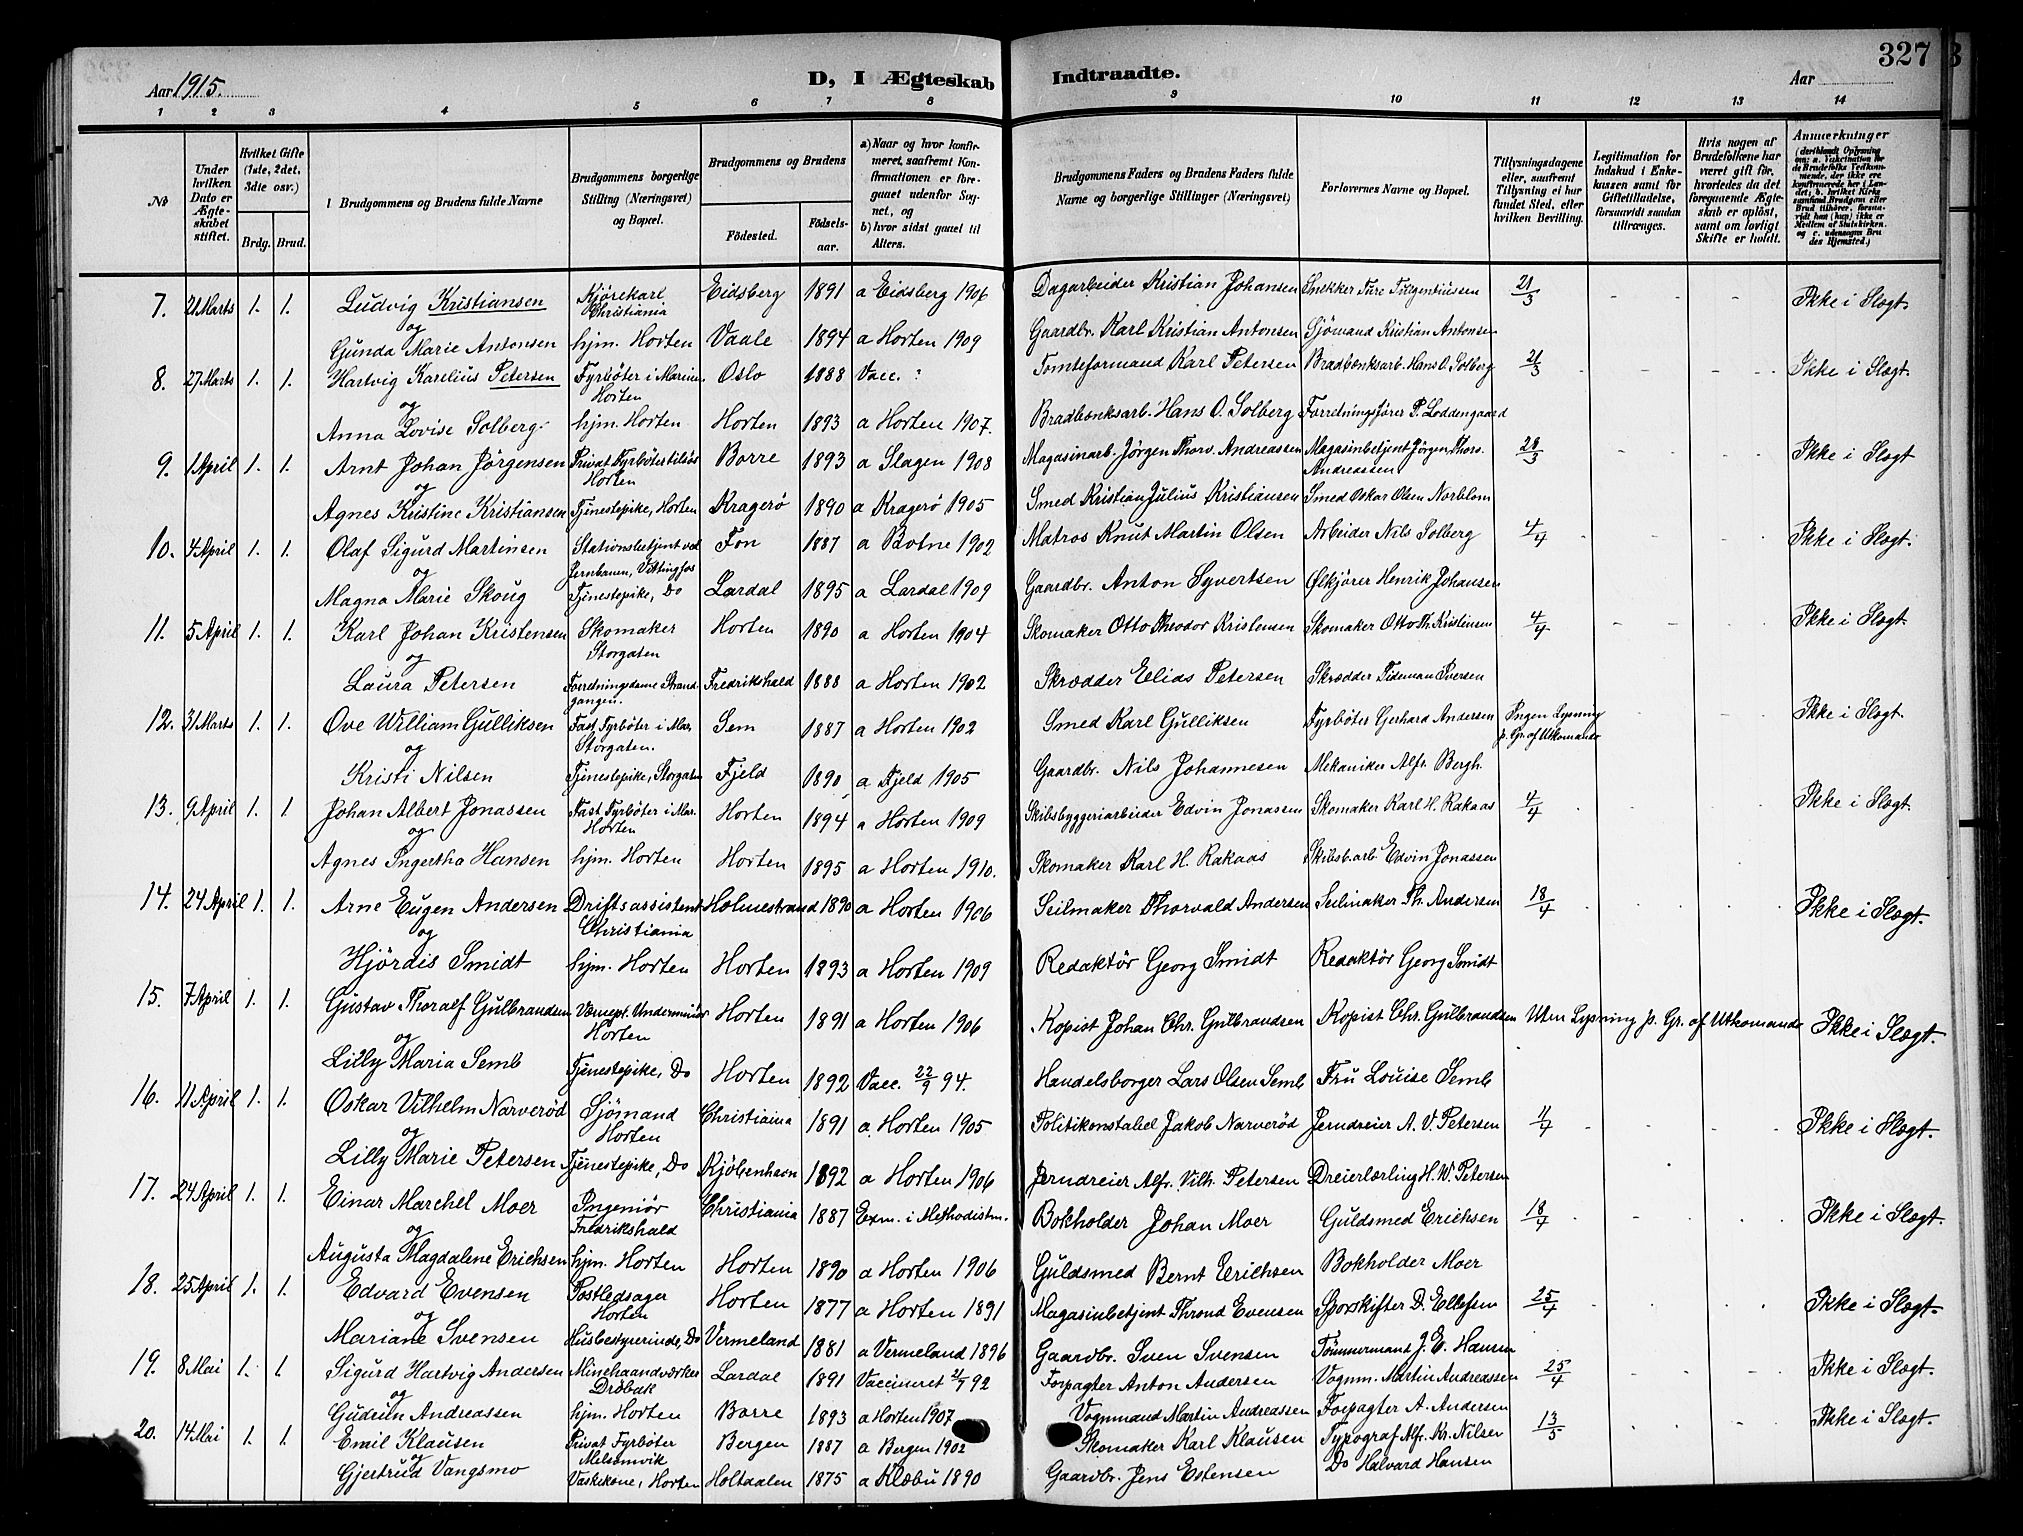 327
Aar 1915.
D, I Ægteskab Indtraadte.
Aar
1 2 3 4 5 6 7 8 9 10 11 12 13 14
No
Under hvilken Dato er Ægteskabet stiftet.
Hvilket Gifte (1ste, 2det, 3die osv.)
Brdg. Brud.
Brudgommens og Brudens fulde Navne
Brudgommens borgerlige Stilling (Næringsvei) og Bopæl.
Brudgommens og Brudens
Fødested.
Fødselsaar.
a) Naar og hvor konfirmeret, saafremt Konfirmationen er foregaaet udenfor Sognet, og
b) hvor sidst gaaet til Alters.
Brudgommens Faders og Brudens Faders fulde Navne og borgerlige Stillinger (Næringsvei)
Forlovernes Navne og Bopæl.
Tillysningsdagene eller, saafremt Tillysning ei har fundet Sted, efter hvilken Bevilling.
Legitimation for Indskud i Enkekassen samt for Giftetilladelse, forsaavidt saadan tiltrænges.
Hvis nogen af Brudefolkene har været gift før, hvorledes da det foregaaende Ægteskab er opløst, samt om lovligt Skifte er holdt.
Anmerkninger
7. 21 Marts 1. 1. Ludvig Kristiansen Kjørekarl Christiania Eidsberg 1891 a Eidsberg 1906 Dagarbeider Kristian Johansen Snekker Ture Fulgentiussen 21/3 - - - Ikke i Slægt.
og
Gunda Marie Antonsen hjm. Horten Vaale 1894 a Horten 1909 Gaardbr. Karl Kristian Antonsen Sjømand Kristian Antonsen
8. 27 Marts 1. 1. Hartvig Karelius Petersen Fyrbøter i Marinen Horten Oslo 1888 Vacc. ? Tomteformand Karl Petersen Bradbænksarb. Hans O. Solberg 21/3 Ikke i Slægt.
og
Anna Lovise Solberg hjm. Horten Horten 1893 a Horten 1907. Bradbænksarb. Hans O. Solberg Forretningsfører P. Loddengaard
9. 1 April 1. 1. Arnt Johan Jörgensen Privat Fyrbøter tilsjøs Horten Borre 1893 a Slagen 1908 Magasinarb. Jörgen Thorv. Andreassen Magasinbetjent Jörgen Thorv. Andreassen 28/3 Ikke i Slægt
og
Agnes Kristine Kristiansen Tjenestepike, Horten Kragerö 1890 a Kragerö 1905 Smed Kristian Julius Kristiansen Smed Oskar Olsen Norblom
10. 4 April 1. 1. Olaf Sigurd Martinsen Stationsbetjent ved Jernbanen, Vittingfos Fon 1887 a Botne 1902 Matros Knut Martin Olsen Arbeider Nils Solberg 4/4 Ikke i Slægt.
og
Magna Marie Skoug Tjenestepike, Do Lardal 1895 a Lardal 1909 Gaardbr. Anton Syvertsen Ølkjører Henrik Johansen
11. 5 April 1. 1. Karl Johan Kristensen Skomaker Storgaten Horten 1890 a Horten 1904 Skomaker Otto Theodor Kristensen Skomaker Otto Th. Kristensen 4/4 Ikke i Slægt.
og
Laura Petersen Forretningsdame Strandgangen. Fredrikshald 1888 a Horten 1902 Skrædder Elias Petersen Skrædder Tideman Iversen
12. 31 Marts 1. 1. Ove William Gulliksen Fast Fyrbøter i Mar. Storgaten. Sem 1887 a Horten 1902 Smed Karl Gulliksen Fyrbøter Gerhard Andersen Ingen Lysning p. Gr. af Utkomando Ikke i Slægt.
og
Kristi Nilsen Tjenestepike, Storgaten Fjeld 1890 a Fjeld 1905 Gaardbr. Nils Johannesen Mekaniker Alfr. Bergh.
13. 9 April 1. 1 Johan Albert Jonassen Fast Fyrbøter i Mar. Horten Horten 1894 a Horten 1909 Skibsbyggeriarbeider Edvin Jonassen Skomaker Karl H. Rakaas 4/4 Ikke i Slægt.
og
Agnes Ingertha Hansen hjm. Horten Horten 1895 a Horten 1910. Skomaker Karl H. Rakaas Skibsb.arb. Edvin Jonassen
14. 24 April 1. 1. Arne Eugen Andersen Driftsassistent Christiania Holmestrand 1890 a Horten 1906 Seilmaker Thorvald Andersen Seilmaker Th. Andersen 18/4 Ikke i Slægt.
og
Hjördis Smidt hjm. Horten Horten 1893 a Horten 1909 Redaktör Georg Smidt Redaktör Georg Smidt
15. 7 April 1. 1. Gustav Thoralf Gulbrandsen Værnepl. Underminør Horten Horten 1891 a Horten 1906 Kopist Johan Chr. Gulbrandsen Kopist Chr. Gulbrandsen Uten Lysning p. Gr. af Utkomando Ikke i Slægt.
og
Lilly Maria Semb Tjenestepike, Do Horten 1892 Vacc. 22/9 94. Handelsborger Lars Olsen Semb Fru Louise Semb
16. 11 April 1. 1. Oskar Vilhelm Narveröd Sjömand Horten Christiania 1891 a Horten 1905 Politikonstabel Jakob Narveröd Jerndreier A. V. Petersen 11/4 Ikke i Slægt.
og
Lilly Marie Petersen Tjenestepike, Do Kjöbenhavn 1892 a Horten 1906 Jerndreier Alfr. Vilh. Petersen Dreierlærling H. W. Petersen
17. 24 April 1. 1. Einar Marchel Moer Ingeniör Fredrikshald Christiania 1887 Exm. i Methodistm. Bokholder Johan Moer Guldsmed Erichsen 18/4 Ikke i Slægt.
og
Augusta Magdalene Erichsen hjm. Horten Horten 1890 a Horten 1906 Guldsmed Bernt Erichsen Bokholder Moer
18. 25 April 1. 1. Edvard Evensen Postledsager Horten Horten 1877 a Horten 1891 Magasinbetjent Thrond Evensen Sporskifter D. Ellefsen 25/4 Ikke i Slægt.
og
Mariane Svensen Husbestyrerinde, Do Vermeland 1881 a Vermeland 1896 Gaardbr. Sven Svensen Tømmermand J. E. Hansen
19. 8 Mai 1. 1. Sigurd Hartvig Andersen Minehaandverker Dröbak Lardal 1891 Vaccineret 2/7 92 Forpagter Anton Andersen Vognm. Martin Andreassen 25/4 Ikke i Slægt.
og
Gudrun Andreassen hjm. Horten Borre 1893 a Horten 1907 Vognmand Martin Andreassen Forpagter A. Andersen
20. 14 Mai 1. 1. Emil Klausen Privat Fyrbøter Melsomvik Bergen 1887 a Bergen 1902 Skomaker Karl Klausen Typograf Alfr. Kr. Nilsen 13/5 Ikke i Slægt.
og
Gjertrud Vangsmo Vaskekone, Horten Holtdalen 1875 a Klæbu 1890 Gaardbr. Jens Estensen Do Halvard Hansen